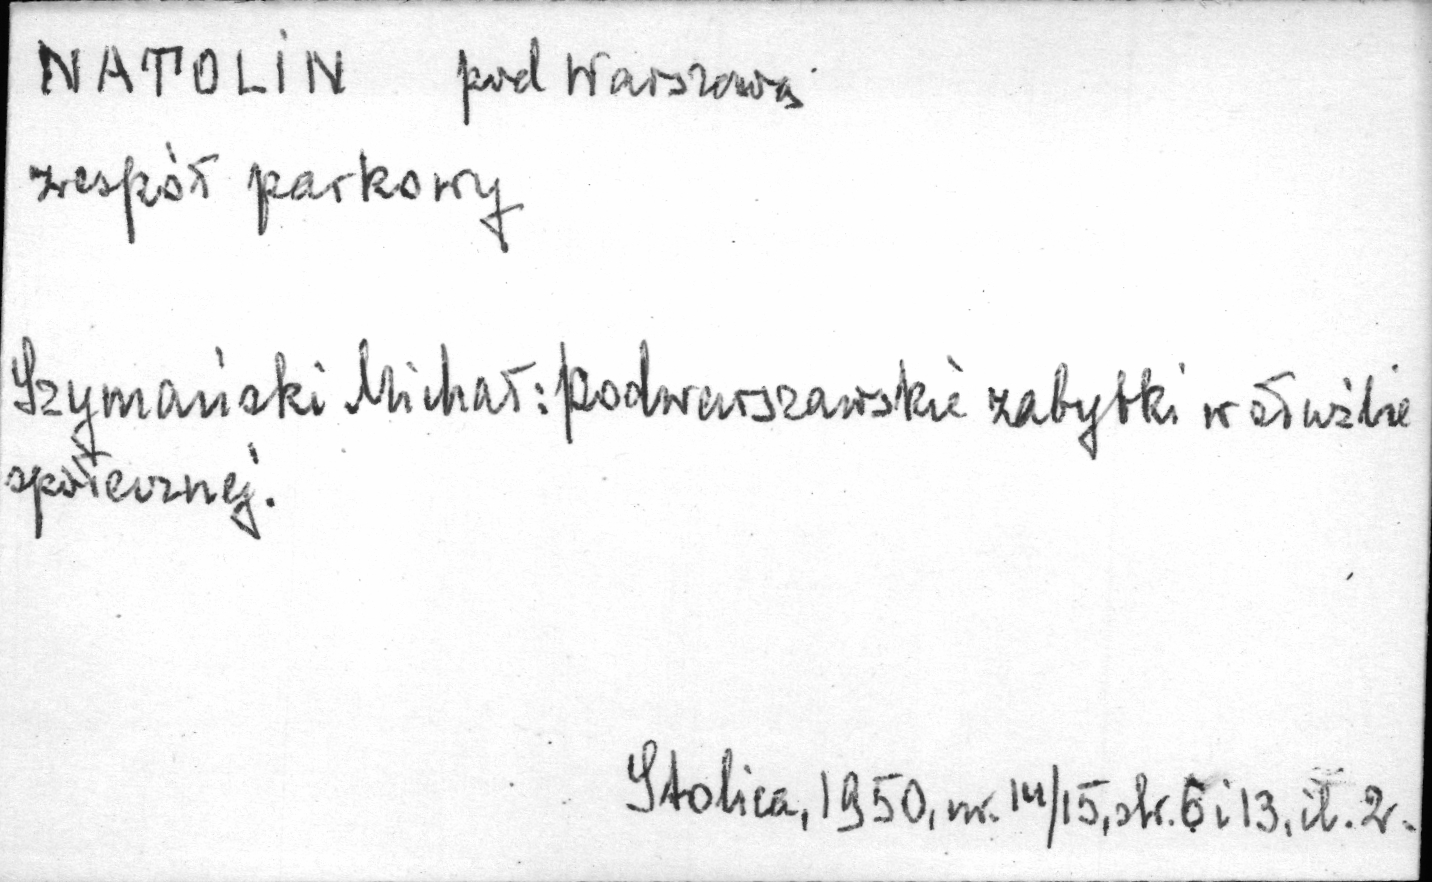 NATOLIN pod Warszawą
zespół parkowy
Szymański Michał: Podwarszawskie zabytki w służbie
społecznej.
Stolica, 1950, nr. 14/15, str. 6 i 13, il. 2.